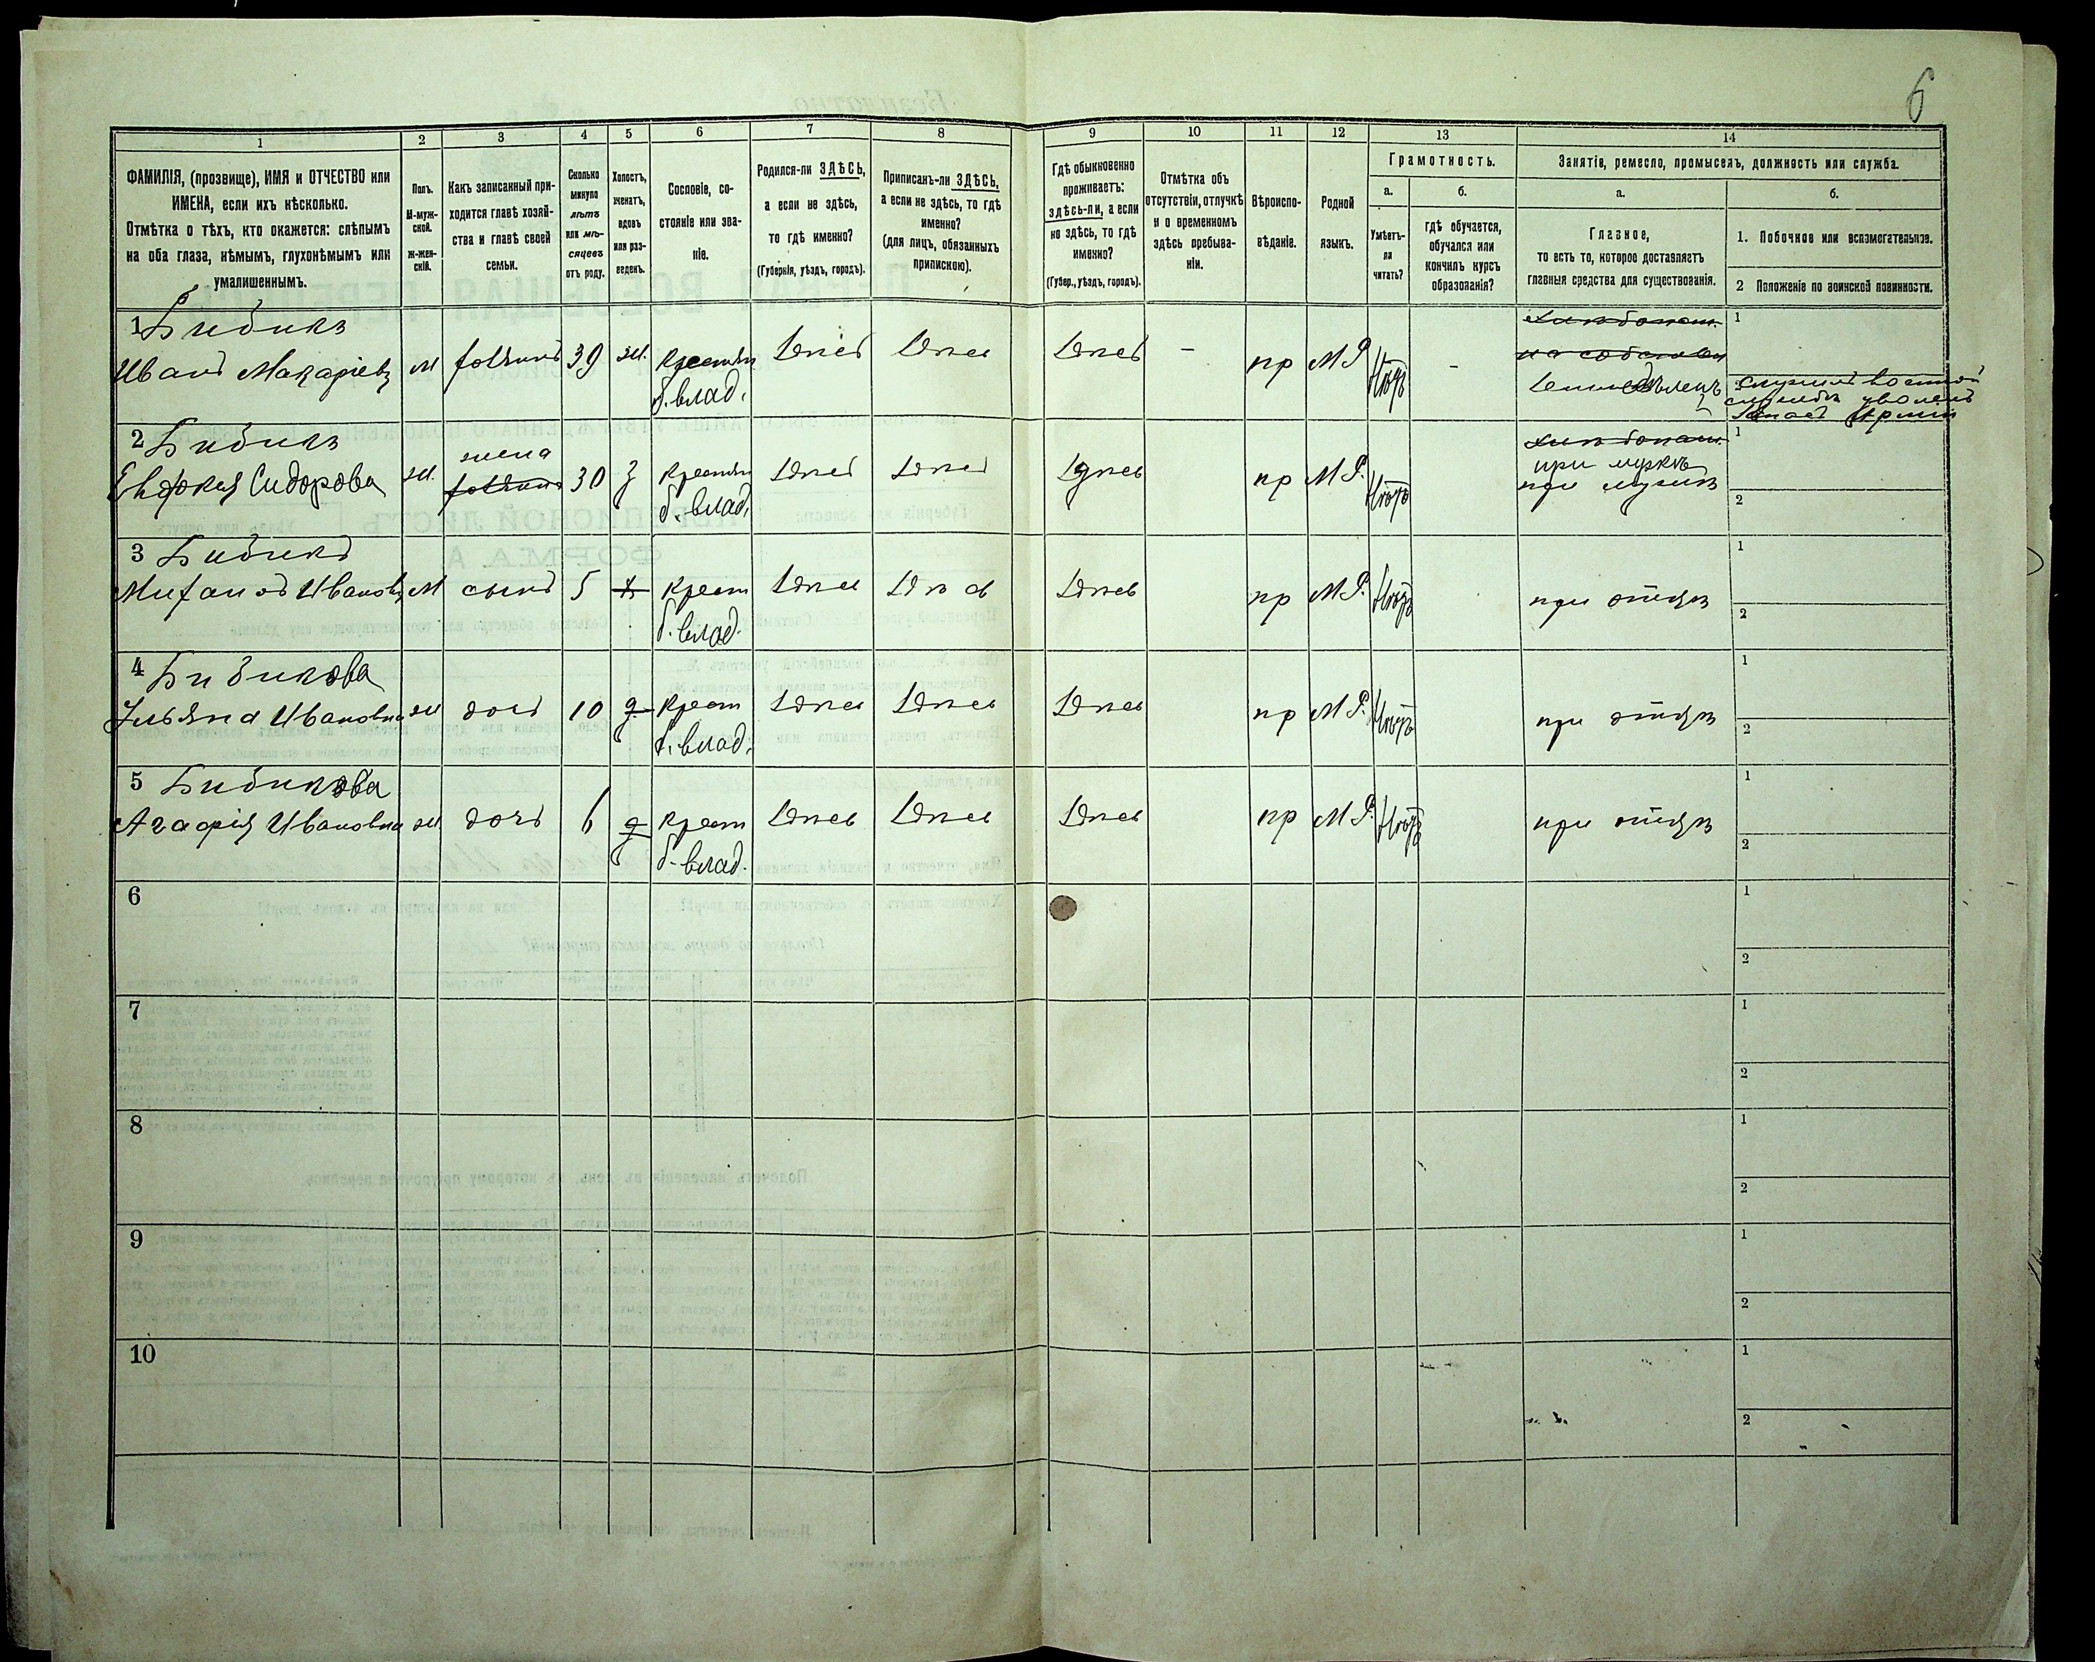 6
1 2 3 4 5 6 7 8 9 10 11 12 13 14
ФАМИЛІЯ, (прозвище), ИМЯ и ОТЧЕСТВО или
ИМЕНА, если ихъ нѣсколько.
Отмѣтка о тѣхъ, кто окажется: слѣпымъ
на оба глаза, нѣмымъ, глухонѣмымъ или
умалишеннымъ.
Полъ.
М-муж-
ской.
Ж-жен-
скій.
Какъ записанный при-
ходится главѣ хозяй-
ства и главѣ своей
семьи.
Сколько
минуло
лѣтъ
или мѣ-
сяцевъ
отъ роду.
Холостъ,
женатъ,
вдовъ
или раз-
веденъ.
Сословіе, со-
стояніе или зва-
ніе.
Родился-ли ЗДѢСЬ,
а если не здѣсь,
то гдѣ именно?
(Губернія, уѣздъ, городъ).
Приписанъ-ли ЗДѢСЬ,
а если не здѣсь, то гдѣ
именно?
(для лицъ, обязанныхъ
припискою).
Гдѣ обыкновенно
проживаетъ:
здѣсь-ли, а если
не здѣсь, то гдѣ
именно?
(Губер., уѣздъ, городъ).
Отмѣтка объ
отсутствіи, отлучкѣ
и о временномъ
здѣсь пребыва-
ніи.
Вѣроиспо-
вѣданіе.
Родной
языкъ.
Грамотность.
а.
Умѣетъ-
ли
читать?
б.
гдѣ обучается,
обучался или
кончилъ курсъ
образованія?
Занятіе, ремесло, промыселъ, должность или служба.
а.
Главное,
то есть то, которое доставляетъ
главныя средства для существованія.
б.
1. Побочное или вспомогательное.
2 Положеніе по воинской повинности.
1 Бибикъ
Иванъ Макаріевъ м хозяинъ 39 ж. крестьян здесь здесь здесь - пр М.Р. Нѣтъ -
б. влад.
хлебопаш.
земледѣлецъ
1
2
запасъ Арміи
2 Бибикъ
жена
Сидорова ж. хозяинъ 30 з крестьян здесь здесь здесь пр М.Р. Нѣтъ
б. влад.
хлебопаш.
при мужѣ
при мужѣ
1
2
3 Бибикъ
Ивановъ м сынъ 5 х крест здесь здесь здесь пр М.Р. Нѣтъ при отцѣ
б. влад.
1
2
4 Бибикова
Ульяна Ивановна ж дочь 10 д крест здесь здесь здесь пр М.Р. Нѣтъ при отцѣ
б. влад.
1
2
5 Бибикова
Агафія Ивановна ж дочь 6 д крест здесь здесь здесь пр М.Р. Нѣтъ при отцѣ
б. влад.
1
2
6 1
2
7 1
2
8 1
2
9 1
2
10 1
2